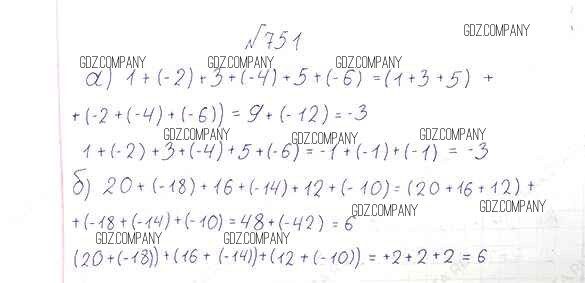 №751
GDZ.COMPANY
GDZ.COMPANY GDZ.COMPANY GDZ.COMPANY
а) 1 + (-2) + 3 + (-4) + 5 + (-6) = (1 + 3 + 5) +
+ (-2 + (-4) + (-6)) = 9 + (-12) = -3
GDZ.COMPANY GDZ.COMPANY GDZ.COMPANY
1 + (-2) + 3 + (-4) + 5 + (-6) = -1 + (-1) + (-1) = -3
б) 20 + (-18) + 16 + (-14) + 12 + (-10) = (20 + 16 + 12) +
GDZ.COMPANY GDZ.COMPANY
+ (-18 + (-14) + (-10) = 48 + (-42) = 6
GDZ.COMPANY GDZ.COMPANY
(20 + (-18)) + (16 + (-14)) + (12 + (-10)) = +2 + 2 + 2 = 6